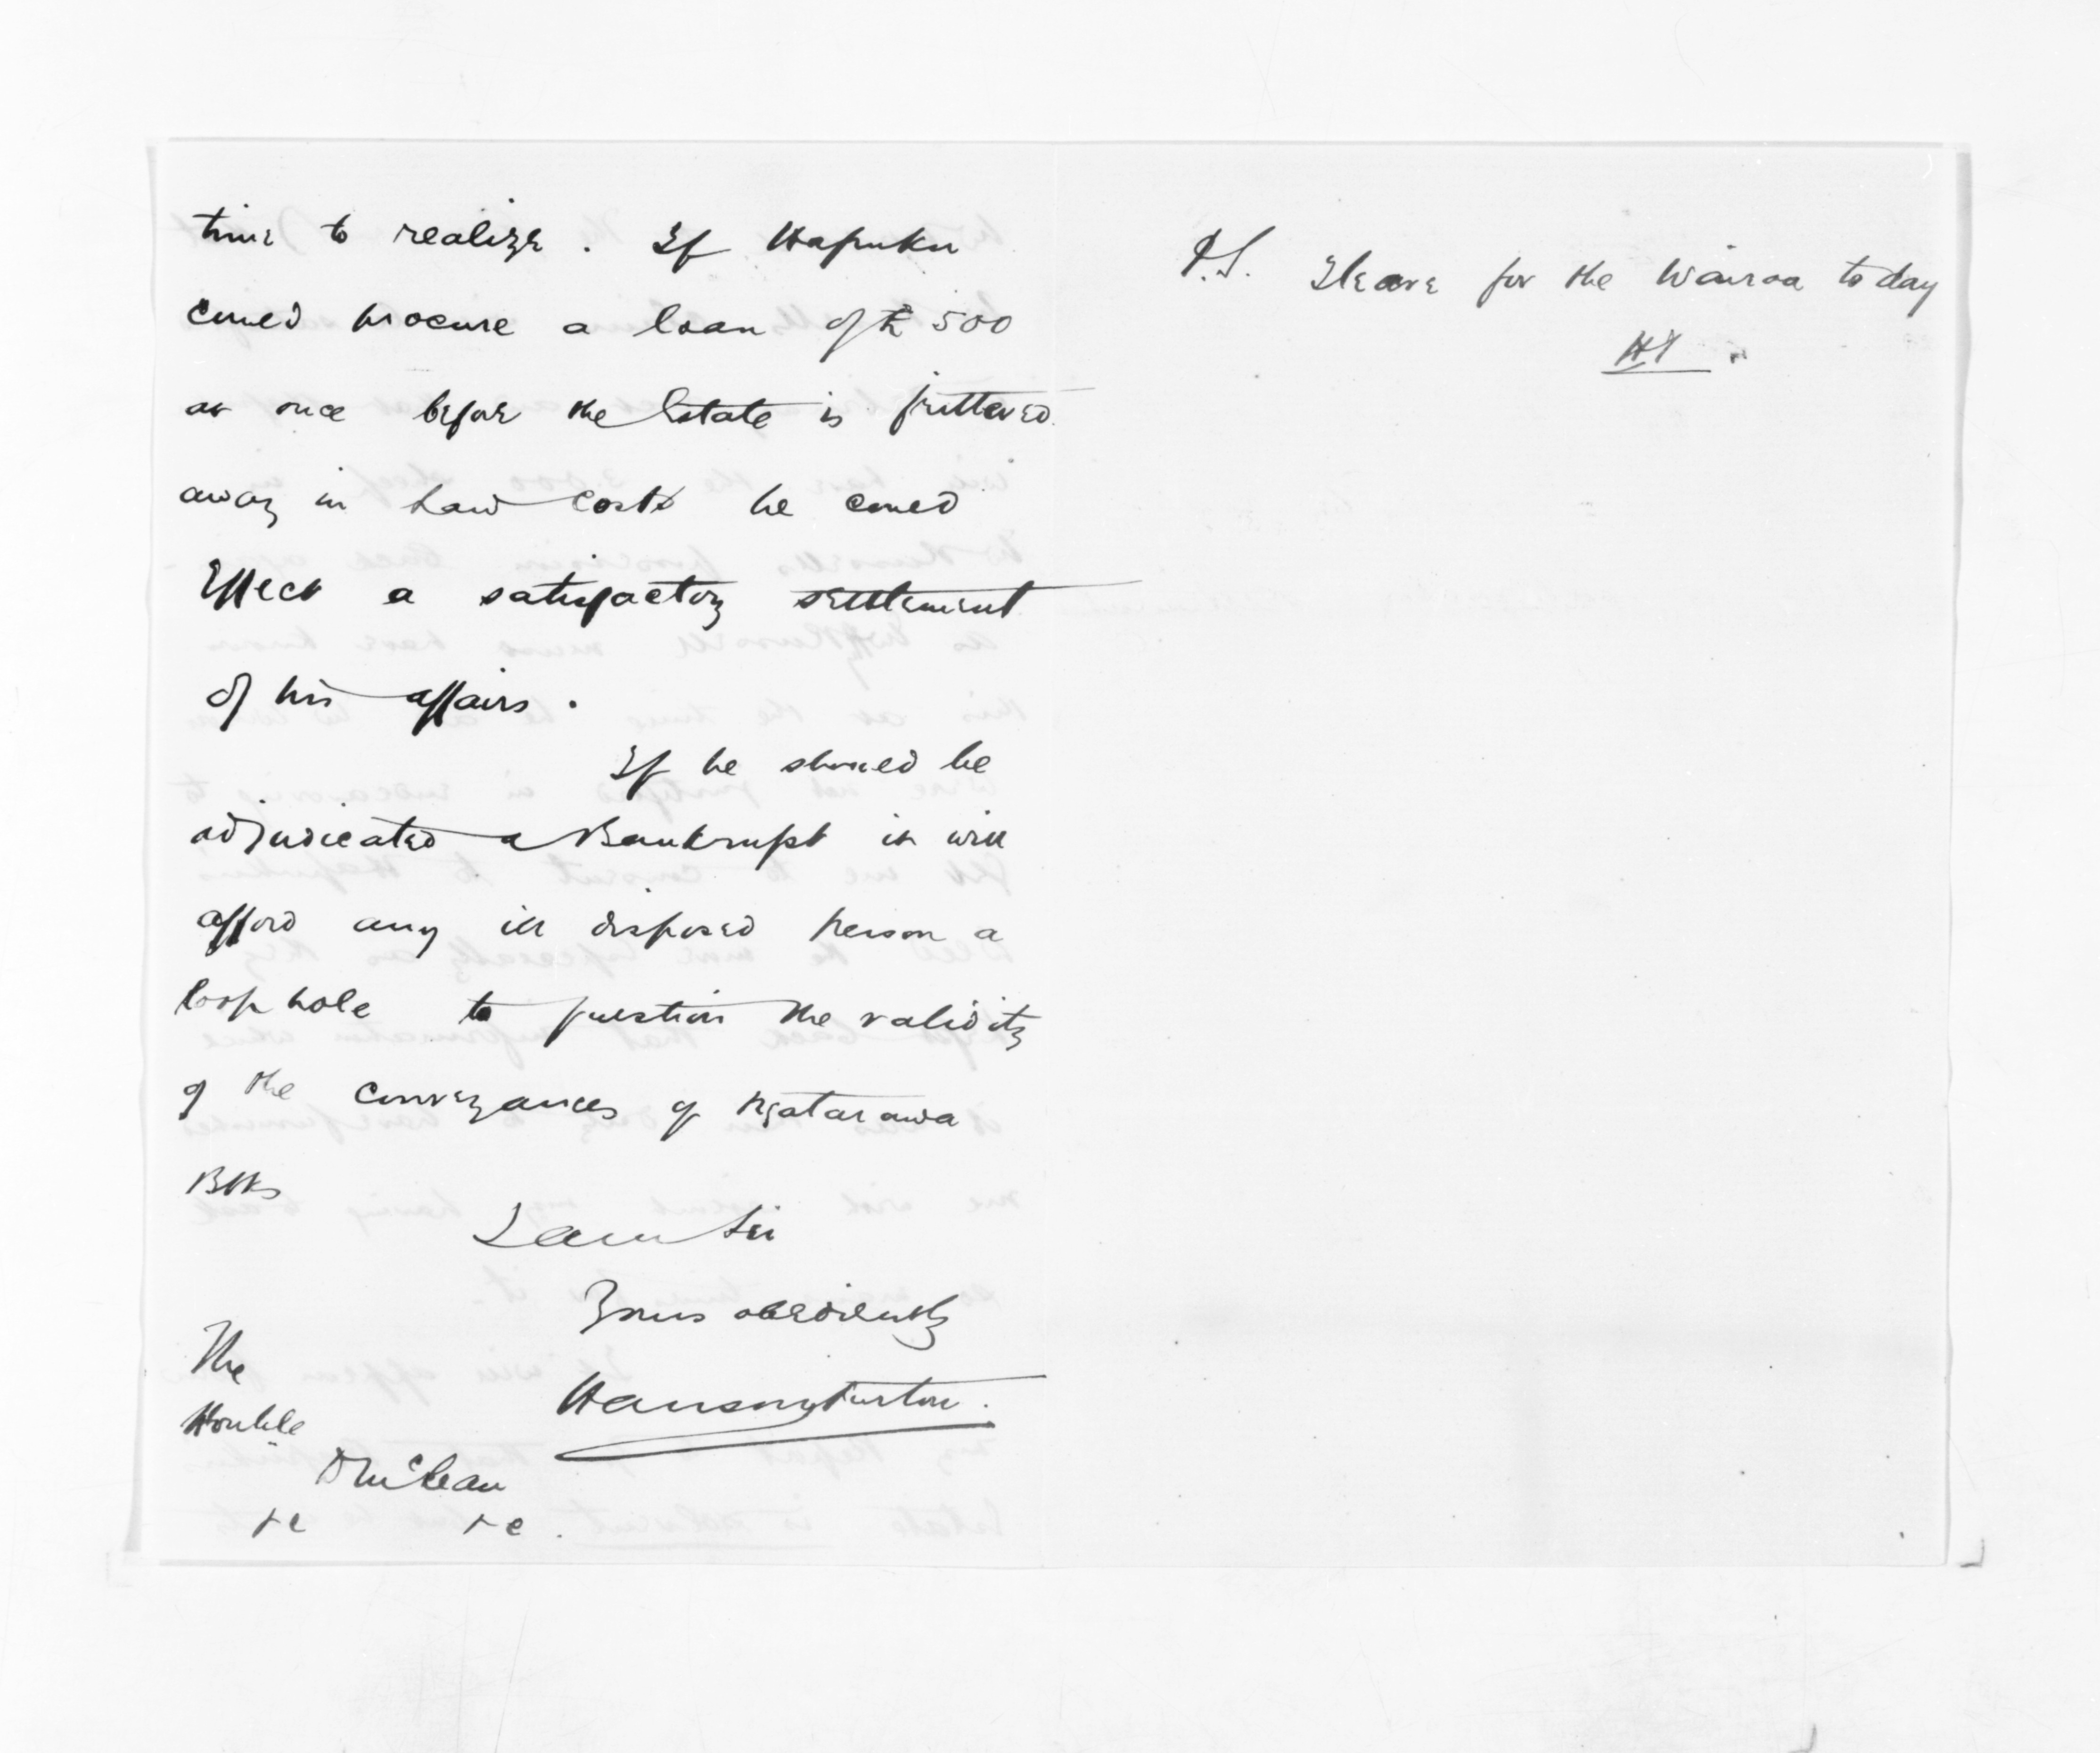 time to realize. If Hapuku
could procure a loan of £500
at once before the Estate is frittered
away in Law Costs he could
Effect a satisfactory settlement
of his affairs.
If he should be
adjudicated a Bankrupt it will
afford any ill disposed person a
loop hole to question the validity
of the conveyances of Ngatarawa
Blks
I am Sir
Yours obediently
Hanson Turton.
The
Honble
D McLean
&c &c.
P.S. I leave for the Wairoa to day
HT